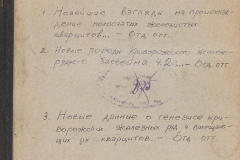 1. Новейшие взгляды на происхо-
ждение полосчатых железистых
кварцитов... — Отд отт.
2. Новые породы Криворожского железо-
рудного бассейна 4.2... — Отд отт.
3. Новые данные о генезисе кри-
ворожских железных руд и вмещающ-
их их кварцитов. — Отд отт.